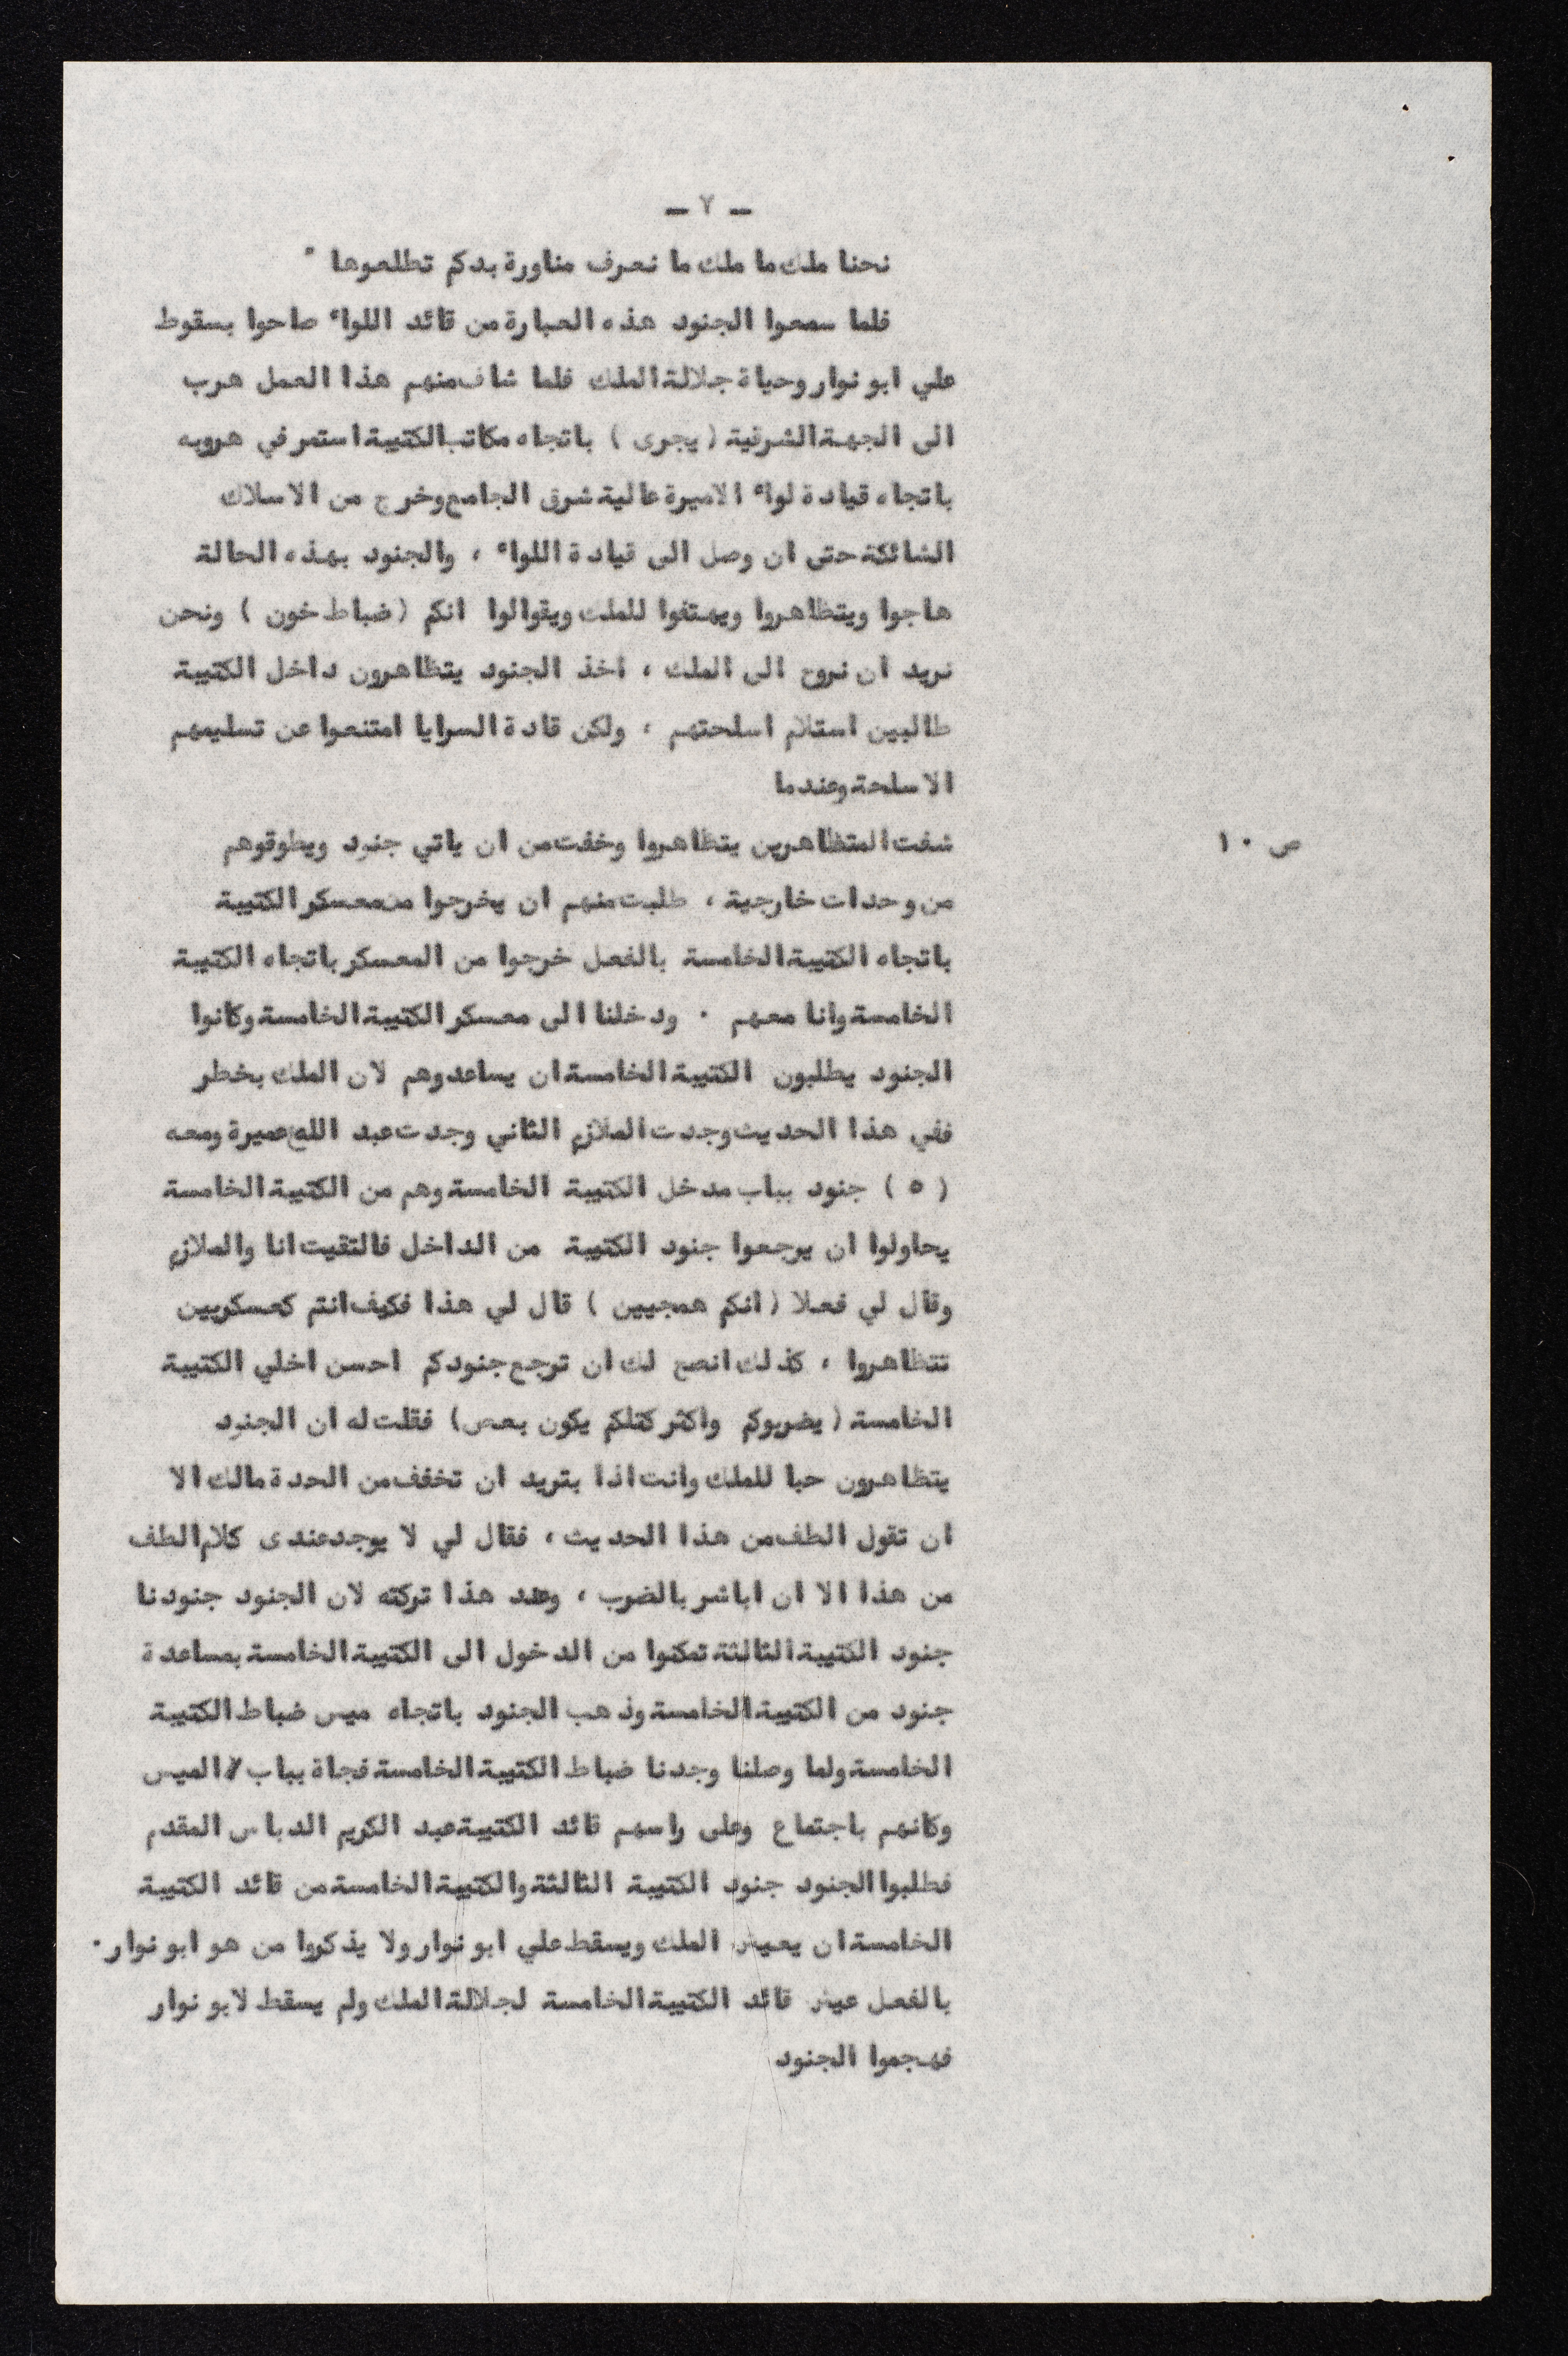 ـ ٧ ـ
نحنا ملك ما ملك ما نعرف مناورة بدكم تطلعوها "
فلما سمعوا الجنود هذه العبارة من قائد اللواء صاحوا بسقوط
علي ابو نوار وحياة جلالة الملك فلما شاف منهم هذا العمل هرب
الى الجهة الشرقية ( يجرى ) باتجاه مكاتب الكتيبة استمر في هروبه
باتجاه قيادة لواء الاميرة عالية شرق الجامع وخرج من الاسلاك
الشائكة حتى ان وصل الى قيادة اللواء ، والجنود بهذه الحالة
هاجوا ويتظاهروا ويهتفوا للملك ويقوالوا انكم ( ضباط خون ) ونحن
نريد ان نروح الى الملك ، اخذ الجنود يتظاهرون داخل الكتيبة
طالبين استلام اسلحتهم ، ولكن قادة السرايا امتنعوا عن تسليمهم
الاسلحة وعندما
ص ١٠ شفت المتظاهرين يتظاهروا وخفت من ان ياتي جنود ويطوقوهم
من وحدات خارجية ، طلبت منهم ان يخرجوا من معسكر الكتيبة
باتجاه الكتيبة الخامسة بالفعل خرجوا من المعسكر باتجاه الكتيبة
الخامسة وانا معهم . ودخلنا الى معسكر الكتيبة الخامسة وكانوا
الجنود يطلبون الكتيبة الخامسة ان يساعدوهم لان الملك بخطر
ففي هذا الحديث وجدت الملازم الثاني وجدت عبد الله عميرة ومعه
( ٥ ) جنود بباب مدخل الكتيبة الخامسة وهم من الكتيبة الخامسة
يحاولوا ان يرجعوا جنود الكتيبة من الداخل فالتقيت انا والملازم
وقال لي فعلا ( انكم همجيين ) قال لي هذا فكيف انتم كعسكريين
تتظاهروا ، كذلك انصح لك ان ترجع جنودكم احسن اخلي الكتيبة
الخامسة ( يضربوكم واكثر كتلكم يكون بعص ) فقلت له ان الجنود
يتظاهرون حبا للملك وانت اذا بتريد ان تخفف من الحدة مالك الا
ان تقول الطف من هذا الحديث ، فقال لي لا يوجد عندى كلام الطف
من هذا الا ان اباشر بالضرب ، وعند هذا تركته لان الجنود جنودنا
جنود الكتيبة الثالثة تمكنوا من الدخول الى الكتيبة الخامسة بمساعدة
جنود من الكتيبة الخامسة وذهب الجنود باتجاه ميس ضباط الكتيبة
الخامسة ولما وصلنا وجدنا ضباط الكتيبة الخامسة فجاة بباب الميس
وكانهم باجتماع وعلى راسهم قائد الكتيبة عبد الكريم الدباس المقدم
فطلبوا الجنود جنود الكتيبة الثالثة والكتيبة الخامسة من قائد الكتيبة
الخامسة ان يعيش الملك ويسقط علي ابو نوار ولا يذكروا من هو ابو نوار .
بالفعل عيش قائد الكتيبة الخامسة لجلالة الملك ولم يسقط لابو نوار
فهجموا الجنود